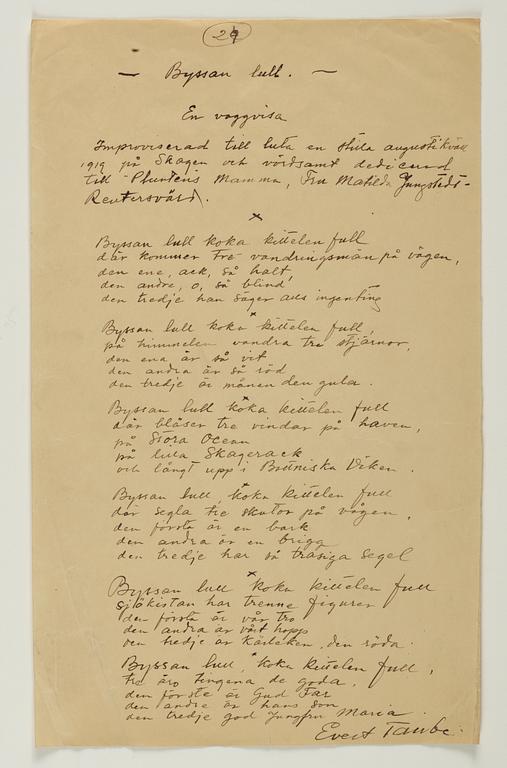 29
— Byssan lull. —
En vaggvisa
Improviserad till luta en stilla augustikväll
1919 på Skagen och vördsamt dedicerad
till Pluntens Mamma, Fru Matilda Jungstedt-
Reuterswärd.
×
Byssan lull koka kittelen full
där kommer tre vandringsmän på vägen,
den ene, ack, så halt,
den andre, o, så blind
den tredje han säger alls ingenting
×
Byssan lull koka kittelen full,
på himmelen vandra tre stjärnor,
den ena är så vit
den andra är så röd
den tredje är månen den gula.
×
Byssan lull koka kittelen full
där blåser tre vindar på haven,
på Stora Ocean
på lilla Skagerack
och långt upp i Bottniska Viken.
×
Byssan lull, koka kittelen full
där segla tre skutor på vågen,
den första är en bark
den andra är en brigg
den tredje har så trasiga segel
×
Byssan lull koka kittelen full
sjökistan har trenne figurer
den första är vår tro
den andra är vårt hopp
den tredje är kärleken, den röda.
×
Byssan lull, koka kittelen full,
tre äro tingena de goda,
den förste är Gud Far
den andre är hans Son
den tredje god Jungfru Maria.
Evert Taube.